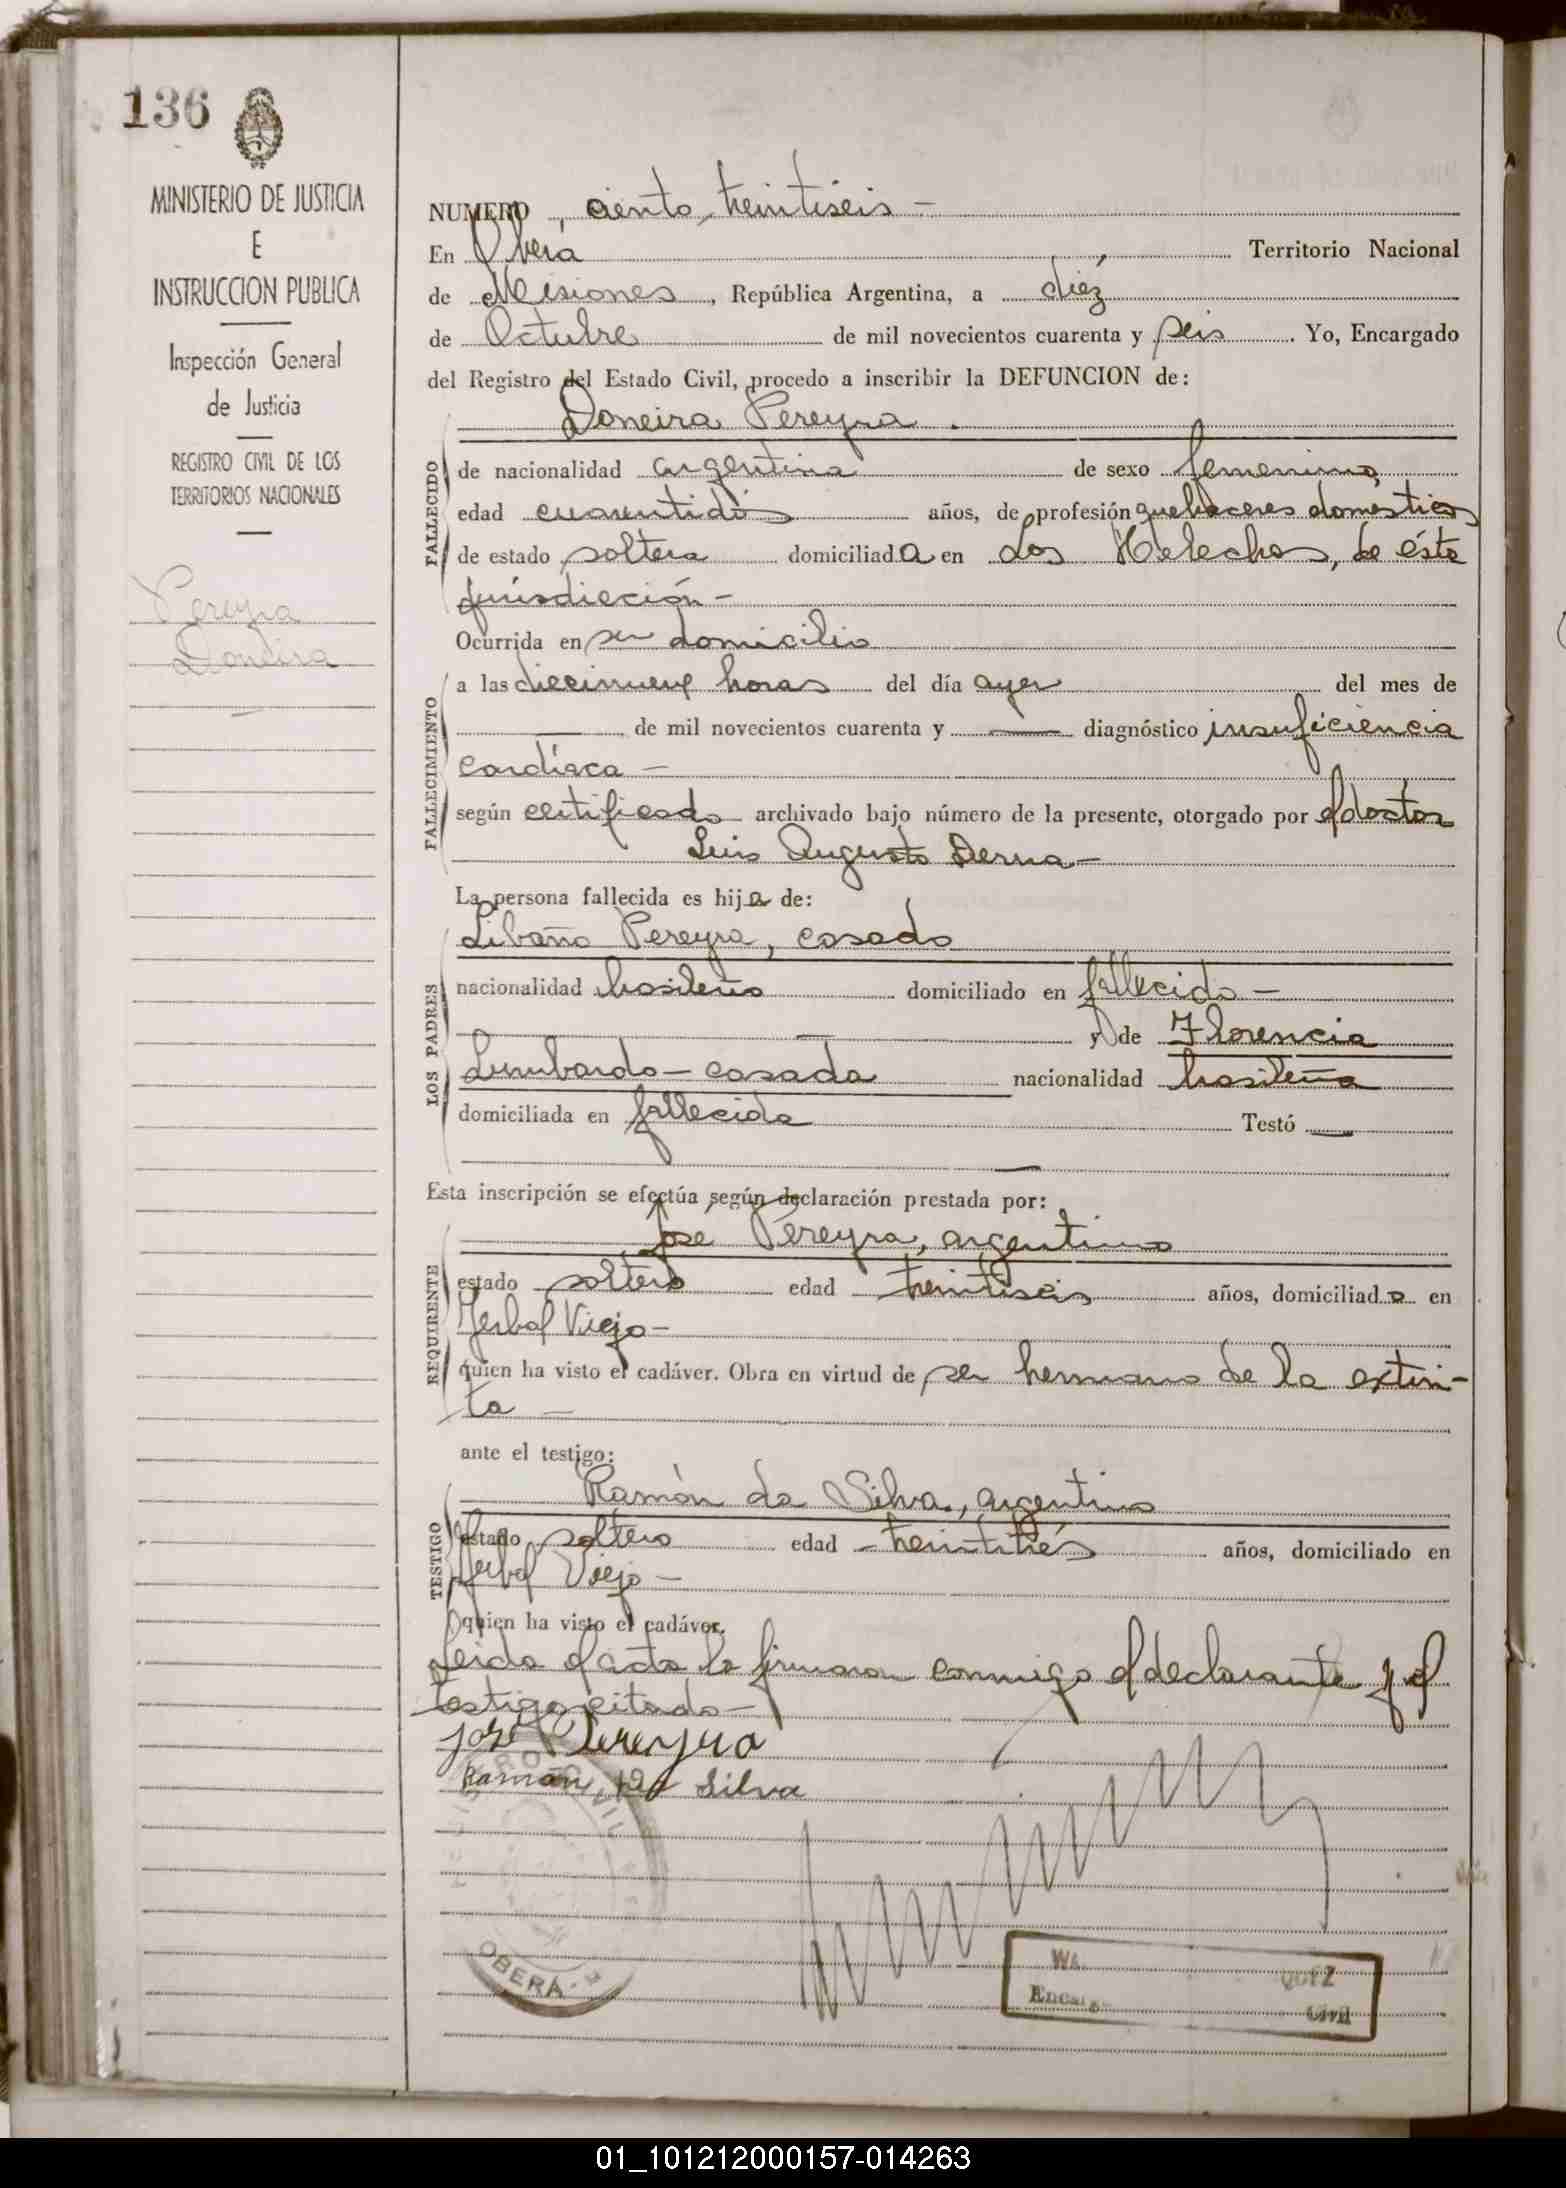 136
MINISTERIO DE JUSTICIA
E
INSTRUCCION PUBLICA
Inspección General
de Justicia
REGISTRO CIVIL DE LOS
TERRITORIOS NACIONALES
Pereyra
Doneira
NUMERO, ciento treintiseis -
En Oberá, Territorio Nacional
de Misiones, República Argentina, a diéz
de Octubre de mil novecientos cuarenta y seis. Yo, Encargado
del Registro del Estado Civil, procedo a inscribir la DEFUNCION de:
Doneira Pereyra.
FALLECIDO
de nacionalidad argentina de sexo femenino,
edad cuarentidós años, de profesión quehaceres domesticos
de estado soltera domiciliada en Los Helechos, de ésta
jurisdicción -
Ocurrida en su domicilio
FALLECIMIENTO
a las diecinueve horas del día ayer del mes de
— de mil novecientos cuarenta y — diagnóstico insuficiencia
cardíaca -
según certificado archivado bajo número de la presente, otorgado por el doctor
Luis Augusto Derna -
La persona fallecida es hija de:
LOS PADRES
Libaño Pereyra, casado
nacionalidad brasileño domiciliado en fallecido -
— y de Florencia
Lumbardo - casada nacionalidad brasileña
domiciliada en fallecida Testó —
—
Esta inscripción se efectúa según declaración prestada por:
REQUIRENTE
José Pereyra, argentino
estado soltero edad treintiseis años, domiciliado en
Yerbal Viejo -
quien ha visto el cadáver. Obra en virtud de ser hermano de la extin-
ta -
ante el testigo:
TESTIGO
Ramón da Silva, argentino
estado soltero edad - treintitrés años, domiciliado en
Yerbal Viejo -
quien ha visto el cadáver.
Leida el acta la firmaron conmigo el declarante y el
testigo citado -
José Pereyra
Ramón da Silva
OBERA
Encarg
Civil
01_101212000157-014263